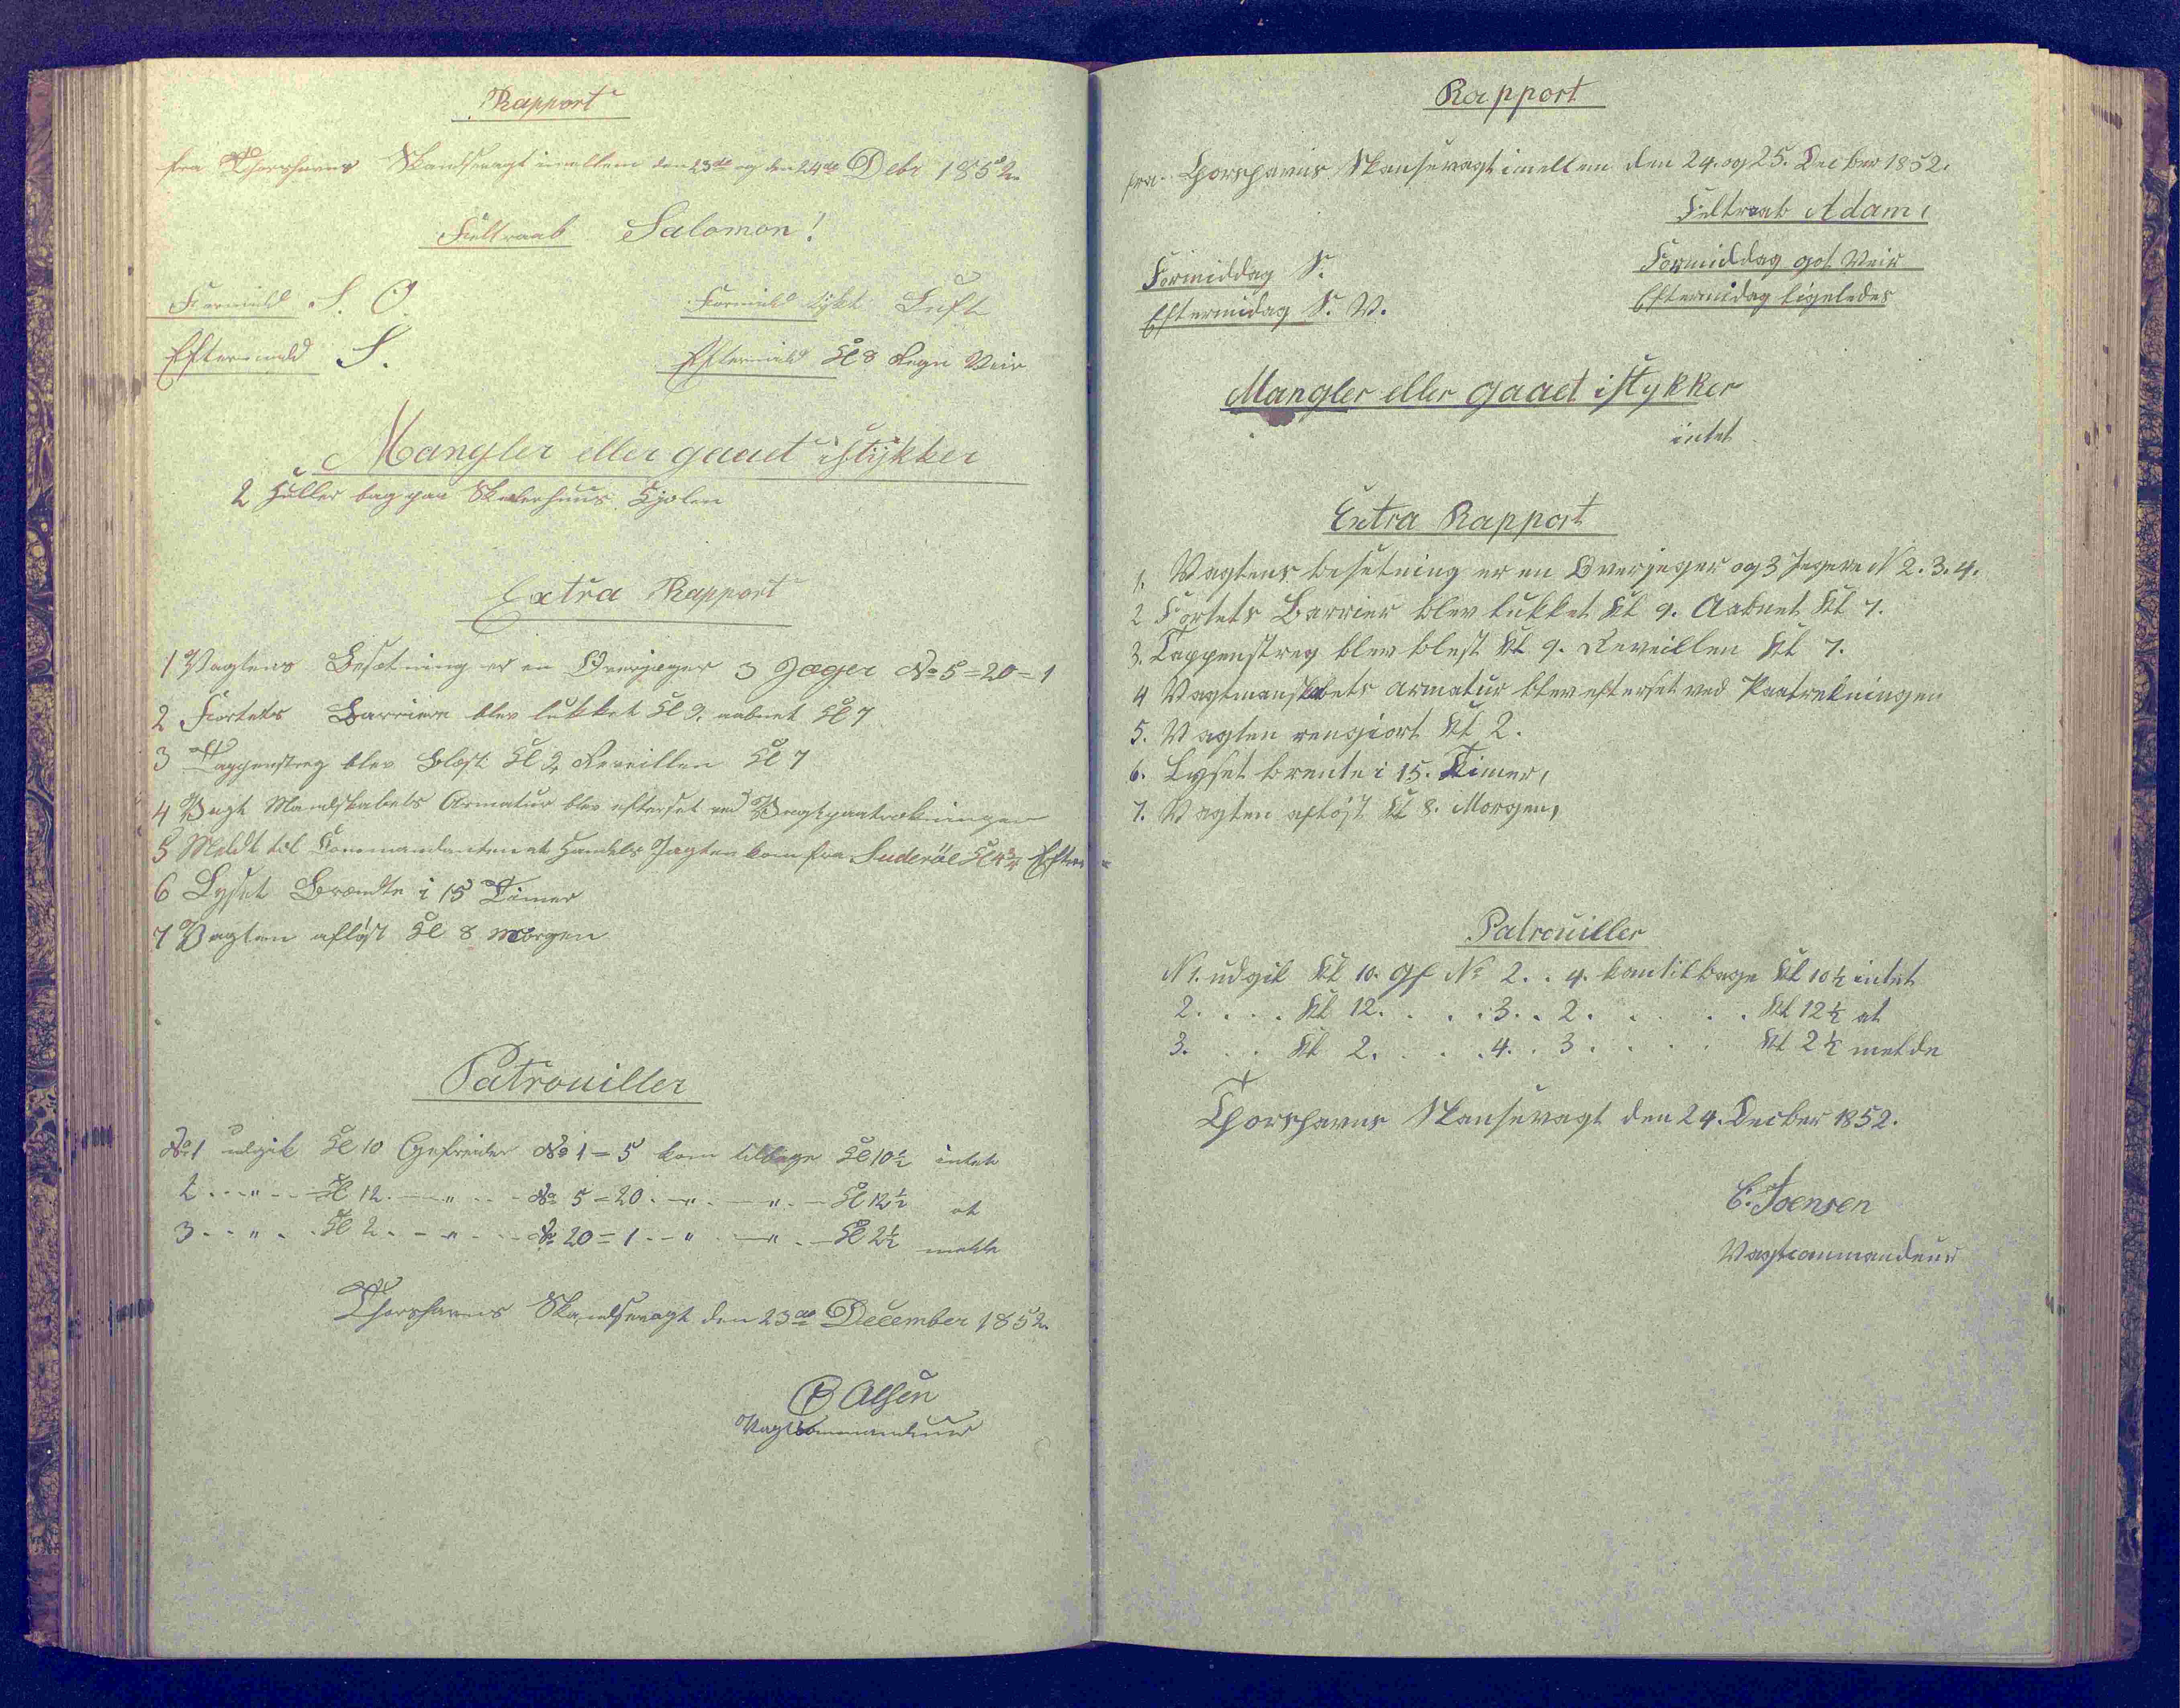 Rapport
fra Thorshavns Skandsevagt imellem den 23de og den 24de Debr 1852.
Feltraab Salomon!
Formidd S. O. Formidd tykt Luft
Eftermidd S. Eftermidd Kl 8 Regn Veir
Mangler eller gaaet istykker
2 Huller bag paa Skilderhuus Kjolen
Extra Rapport
1 Vagtens Besætning er en Overjæger 3 Jæger No 5=20=1
2 Fortets Barriere blev lukket Kl 9. aabnet Kl 7
3 Tappenstreg blev Blæst Kl 9, Reveillen Kl 7
4 Vagt Mandskabets Armatur blev efterset ved Vagtpaatrækningen
5 Meldt til Commandanten at Handels Jagten kom fra Suderöe Kl 4¾ Efter
6 Lyset Brændte i 15 Timer
7 Vagten afløst Kl 8 morgen
Patrouiller
No 1 udgik Kl 10 Gefreider No 1=5 kom tilbage Kl 10½ intet
2 . . " . . Kl 12 . — " . . . No 5=20 . — " . — " . — Kl 12½ at
3 . . " . . Kl 2 . . — " . . . No 20=1 . . — " . — " . — Kl 2½ melde
Thorshavns Skandsevagt den 23de December 1852.
B Olsen
Vagtcommandeur
Rapport
fra Thorshavns Skansevagt imellem den 24. og 25. Decber 1852.
Feltraab Adam,
Formiddag S. Formiddag got Veir
Eftermidag S. V. Eftermidag ligeledes
Mangler eller gaaet istykker
intet
Extra Rapport
1. Vagtens besetning er en Overjeger og 3 Jegere N 2. 3. 4.
2 Fortets Barrier blev lukket Kl 9. Aabnet Kl 7.
3. Tappenstreg blev blest Kl 9. Reveillen Kl 7.
4 Vagtmanskabets armatur blev efterset ved Paatrekningen
5. Vagten rengiort Kl 2.
6. Lyset brente i 15. Timer,
7. Vagten afløst Kl 8. Morgen,
Patrouiller
N 1. udgik Kl 10. Gf No 2. . 4. kom tilbage Kl 10½ intet
2. . . . Kl 12. . . . 3. . 2. . . . . Kl 12½ at
3. . . . Kl 2. . . . 4. . 3 . . . . Kl 2½ melde
Thorshavns Skansevagt den 24. Decber 1852.
C. Joensen
Vagtcommandeur